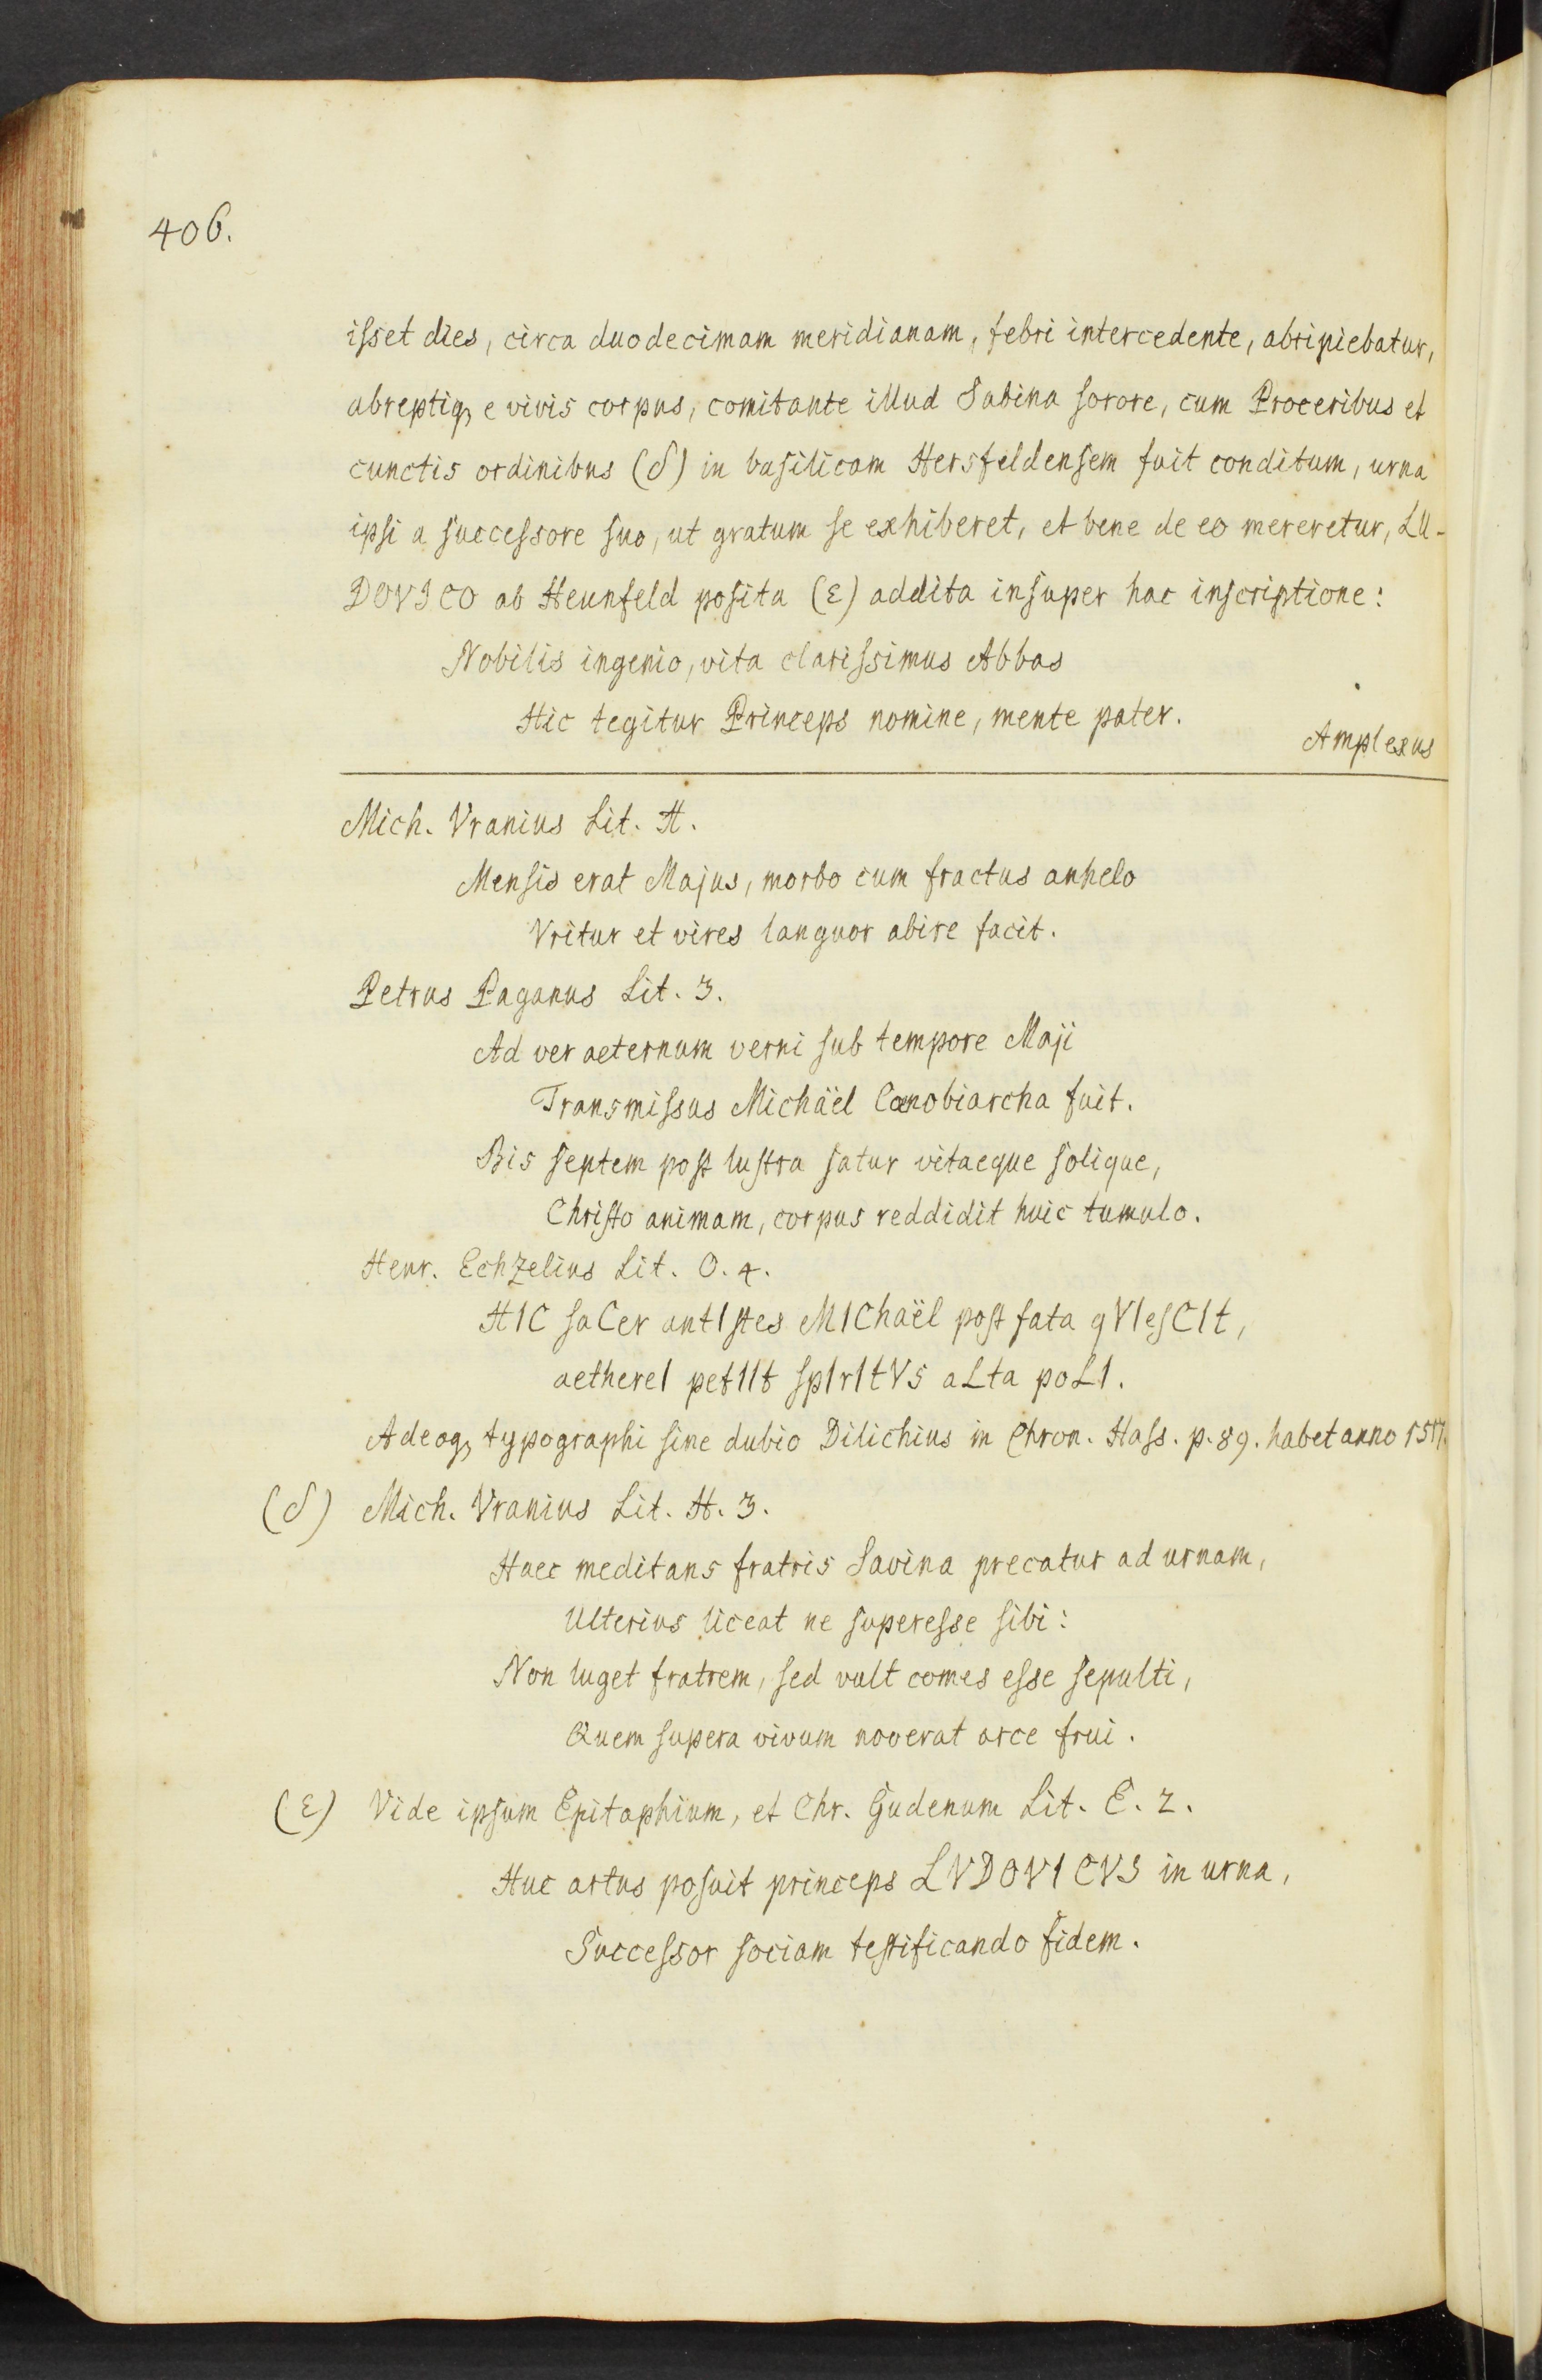 406.
isset dies, circa duodecimam meridianam, febri intercedente, abripiebatur,
abreptiq, e vivis corpus, comitante illud Sabina sorore, cum Proceribus et
cunctis ordinibus (δ) in basilicam Hersfeldensem fuit conditum, urna
ipsi a successore suo, ut gratum se exhiberet, et bene de eo mereretur, LU-
DOVICO ab Heunfeld posita (ε) addita insuper hac inscriptione:
Nobilis ingenio, vita clarissimus Abbas
Hic tegitur Princeps nomine, mente pater.
Amplexus
Mich. Vranius Lit. H.
Mensis erat Majus, morbo cum fractus anhelo
Vritur et vires languor abire facit.
Petrus Paganus Lit. 3.
Ad ver aeternum verni sub tempore Maji
Transmissus Michäel Cœnobiarcha fuit.
Bis septem post lustra satur vitaeque solique,
Christo animam, corpus reddidit huic tumulo.
Henr. Echzelius Lit. O. 4.
HIC saCer antIstes MIChaël post fata qVIesCIt,
aethereI petIIt spIrItVs aLta poLI.
Adeoq, typographi sine dubio Dilichius in Chron. Hass. p. 89. habet anno 1517.
(δ) Mich. Vranius Lit. H. 3.
Haec meditans fratris Savina precatur ad urnam,
Ulterius liceat ne superesse sibi:
Non luget fratrem, sed vult comes esse sepulti,
Quem supera vivum noverat arce frui.
(ε) Vide ipsum Epitaphium, et Chr. Gudenum Lit. E. 2.
Huc artus posuit princeps LVDOVICVS in urna,
Successor sociam testificando fidem.